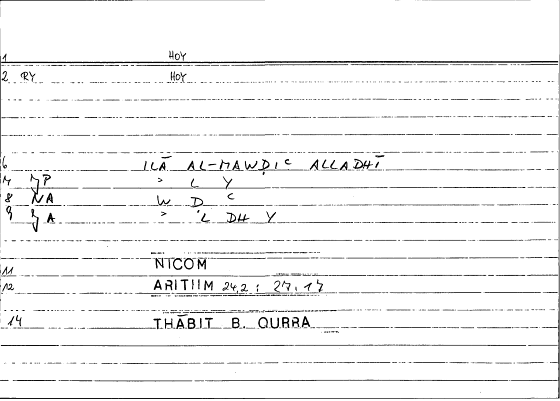 1 HOY
2 RY HOY
6 ILĀ AL-MAWḌIᶜ ALLADHĪ
ʾ L Y
8 NA W D ᶜ
9 ʾ L DH Y
11 NICOM
12 ARITIIM 24,2 ; 27,17
14 THĀBIT B. QURRA